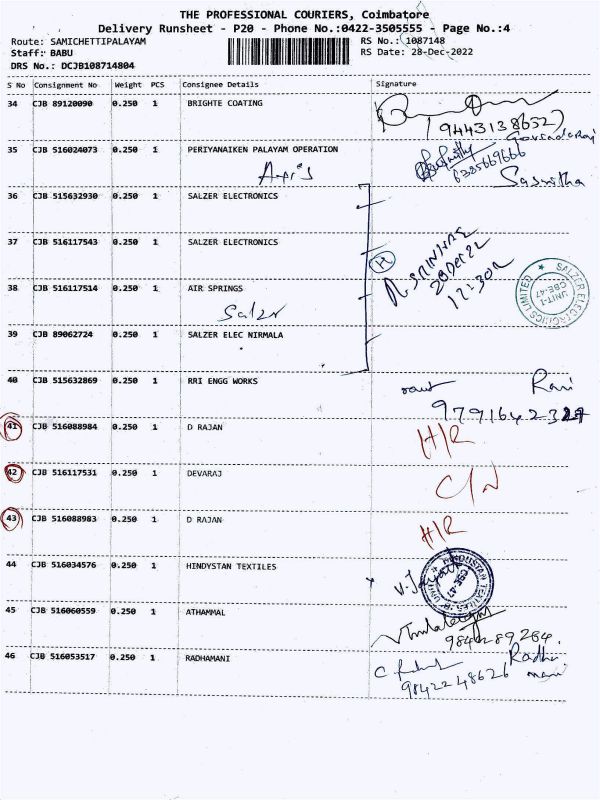 THE PROFESSIONAL COURIERS, Coimbatore
Delivery Runsheet - P20 - Phone No.:0422-3505555 - Page No.:4
Route: SAMICHETTIPALAYAM RS No.: 1087148
Staff: BABU RS Date: 28-Dec-2022
DRS No.: DCJB108714804
S No Consignment No Weight PCS Consignee Details Signature
34 CJB 89120090 0.250 1 BRIGHTE COATING
(9443138632)
35 CJB 516024073 0.250 1 PERIYANAIKEN PALAYAM OPERATION
6385669666
Sasmitha
36 CJB 515632930 0.250 1 SALZER ELECTRONICS
37 CJB 516117543 0.250 1 SALZER ELECTRONICS
H
28 DEC 22
12:30
38 CJB 516117514 0.250 1 AIR SPRINGS
Salzer
SALZER ELECTRONICS LIMITED
UNIT-I
CBE-47
39 CJB 89062724 0.250 1 SALZER ELEC NIRMALA
40 CJB 515632869 0.250 1 RRI ENGG WORKS
Ravi
41 CJB 516088984 0.250 1 D RAJAN
H/R
42 CJB 516117531 0.250 1 DEVARAJ
C/N
43 CJB 516088983 0.250 1 D RAJAN
H/R
44 CJB 516034576 0.250 1 HINDYSTAN TEXTILES
HINDUSTAN TEXTILES
45 CJB 516060559 0.250 1 ATHAMMAL
9842289284.
46 CJB 516053517 0.250 1 RADHAMANI
Radha
mani
9842248626